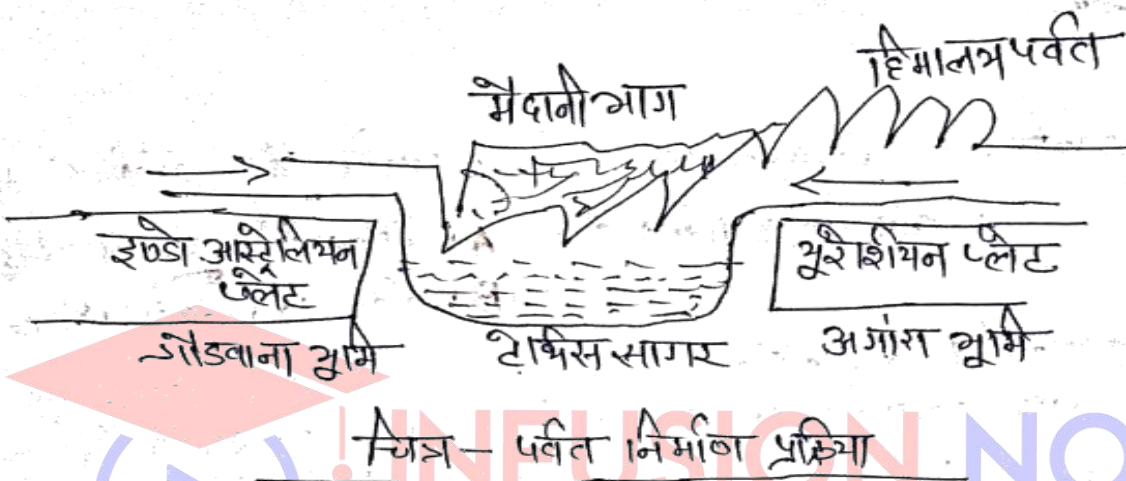 हिमालय पर्वत
मैदानी भाग
इण्डो आस्ट्रेलियन
प्लेट
यूरेशियन प्लेट
गोंडवाना भूमि
टेथिस सागर
अगांरा भूमि
चित्र - पर्वत निर्माण प्रक्रिया
INFUSION NO